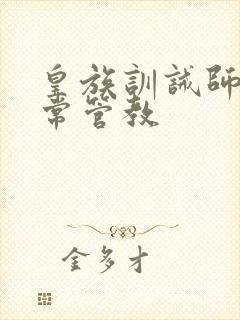 皇族訓誡師
常管教
金多才